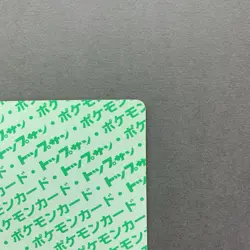 ポケモンカード
トップサン・ポケモン
ポケモンカード・トップサン
トップサン・ポケモンカード
ポケモンカード・トップサン
トップサン・ポケモンカード